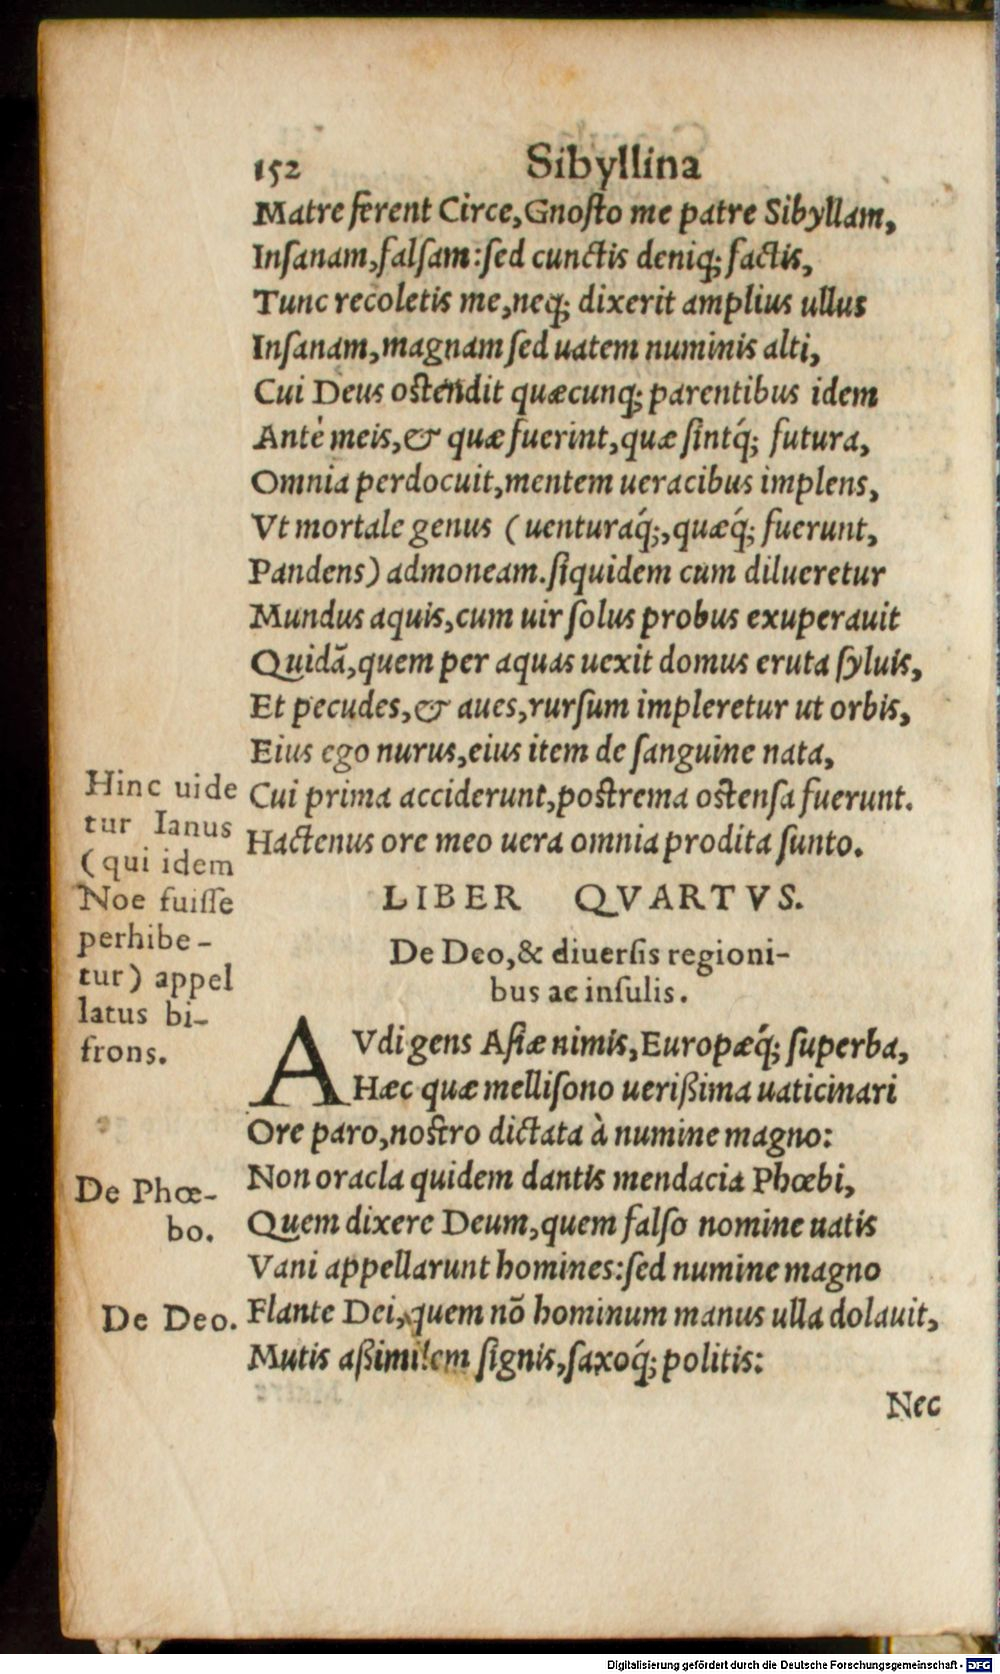 152 Sibyllina
Matre ferent Circe,Gnosto me patre Sibyllam,
Insanam,falsam:sed cunctis deniq; factis,
Tunc recoletis me,neq; dixerit amplius ullus
Insanam,magnam sed uatem numinis alti,
Cui Deus ostendit quæcunq; parentibus idem
Antè meis,& quæ fuerint,quæ sintq́; futura,
Omnia perdocuit,mentem ueracibus implens,
Vt mortale genus (uenturaq́;,quæq́; fuerunt,
Pandens) admoneam.siquidem cum dilueretur
Mundus aquis,cum uir solus probus exuperauit
Quidã,quem per aquas uexit domus eruta syluis,
Et pecudes,& aues,rursum impleretur ut orbis,
Eius ego nurus,eius item de sanguine nata,
Cui prima acciderunt,postrema ostensa fuerunt.
Hactenus ore meo uera omnia prodita sunto.
Hinc uide
tur Ianus
(qui idem
Noe fuisse
perhibe-
tur) appel
latus bi-
frons.
LIBER QVARTVS.
De Deo,& diuersis regioni-
bus ac insulis.
AVdi gens Asiæ nimis,Europæq́; superba,
Hæc quæ mellisono uerißima uaticinari
Ore paro,nostro dictata à numine magno:
Non oracla quidem dantis mendacia Phœbi,
Quem dixere Deum,quem falso nomine uatis
Vani appellarunt homines:sed numine magno
Flante Dei,quem nõ hominum manus ulla dolauit,
Mutis aßimilem signis,saxoq́; politis:
De Phœ-
bo.
De Deo.
Nec
Digitalisierung gefördert durch die Deutsche Forschungsgemeinschaft - DFG